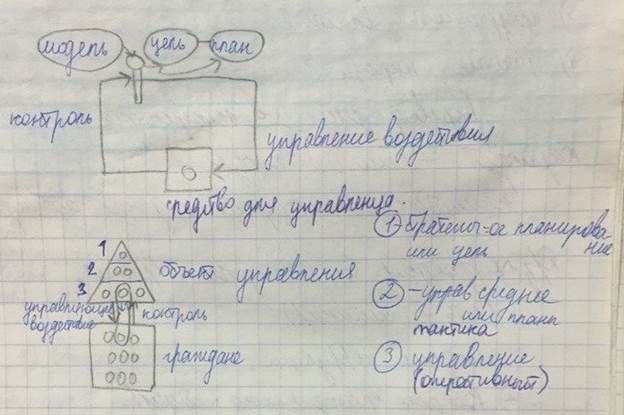 модель цель план
контроль
управление воздействия
средство для управленца.
1
2
3
объект управления
управляющее
воздействие
контроль
граждане
① планирова-
ние
или цель
② - управ среднее
или планы
тактика
③ управление
(оперативный)